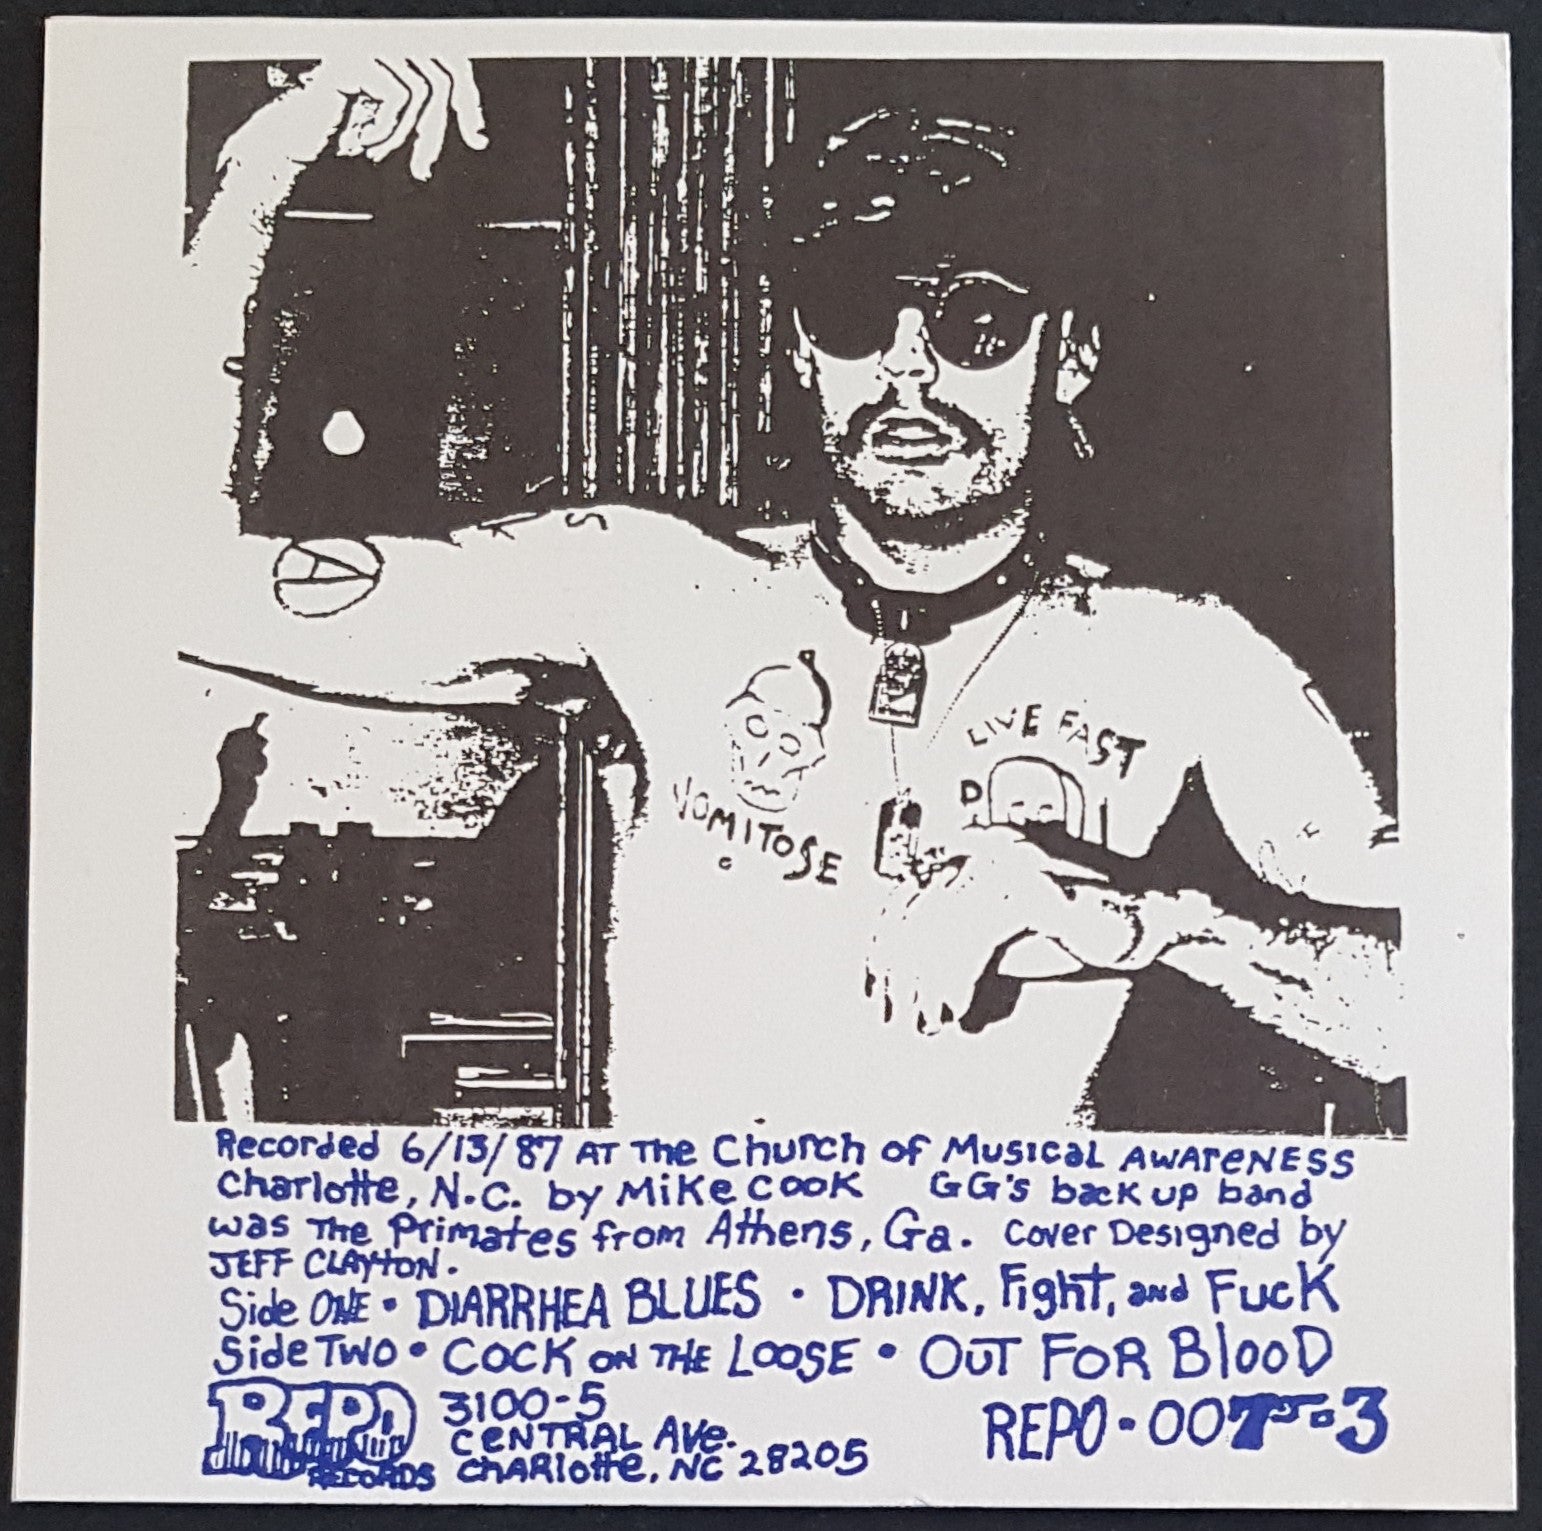 VOMITOSE
LIVE FAST
D
Recorded 6/13/87 AT THE Church of Musical AWARENESS
Charlotte, N.C. by MiKe COOK GG's back up band
was THE Primates from Athens, Ga. Cover Designed by
JEFF CLAYTON.
Side ONE • DIARRHEA BLUES • DRINK, Fight, and FUCK
Side TWO • COCK ON THE LOOSE • OUT FOR BlOOD
REPO RECORDS
3100-5
CENTRAL AVE.
CHARlotte, NC 28205
REPO-007